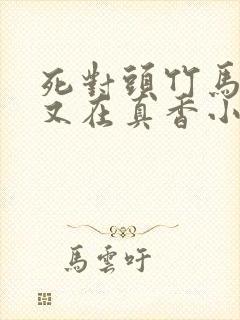 死對頭竹馬
又在真香小
馬雲吁